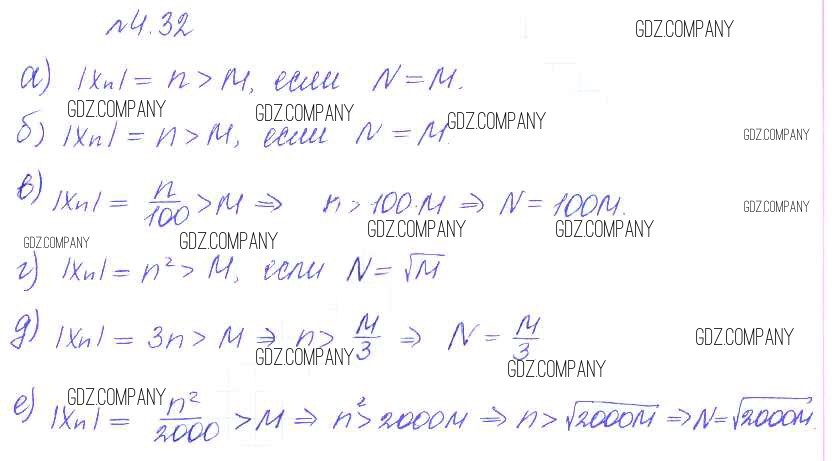 №4.32 GDZ.COMPANY
а) |Xn| = n > M, если N = M.
GDZ.COMPANY GDZ.COMPANY GDZ.COMPANY
б) |Xn| = n > M, если N = M. GDZ.COMPANY
в) |Xn| = n/100 > M ⇒ n > 100·M ⇒ N = 100M. GDZ.COMPANY
GDZ.COMPANY GDZ.COMPANY GDZ.COMPANY GDZ.COMPANY
г) |Xn| = n² > M, если N = √M
д) |Xn| = 3n > M ⇒ n > M/3 ⇒ N = M/3 GDZ.COMPANY
GDZ.COMPANY GDZ.COMPANY
GDZ.COMPANY
е) |Xn| = n²/2000 > M ⇒ n² > 2000M ⇒ n > √2000M ⇒ N = √2000M.